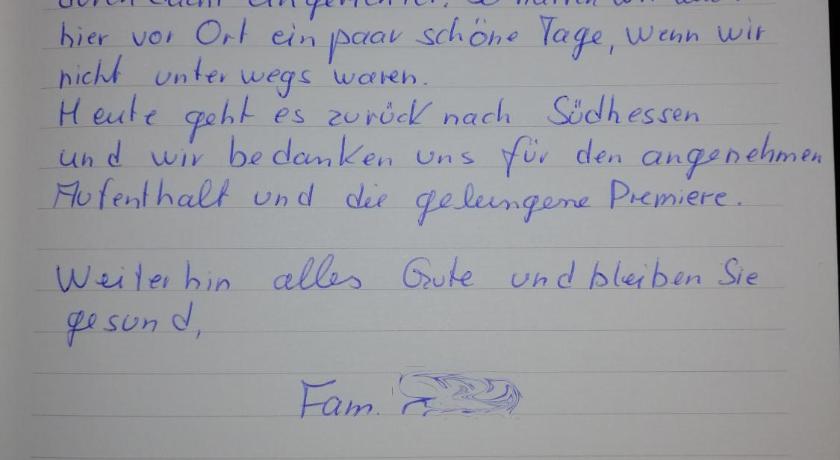 hier vor Ort ein paar schöne Tage, wenn wir
nicht unterwegs waren.
Heute geht es zurück nach Südhessen
und wir bedanken uns für den angenehmen
Aufenthalt und die gelungene Premiere.
Weiterhin alles Gute und bleiben Sie
gesund,
Fam.